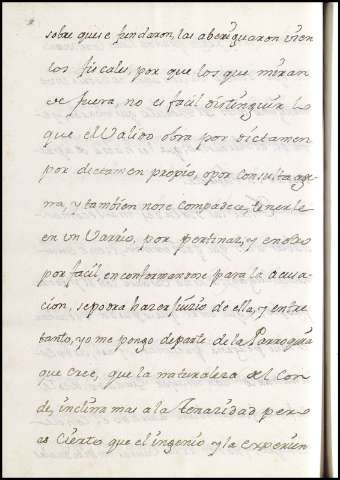 sobre que se fundaron, las aberiguaron vien
los fiscales, por que los que miran
de fuera, no es facil distinguir lo
que el Valido obra por dictamen
por dictamen propio, o por consulta age
na, y tambien no se compadece, tenerle
en un Varrio, por pertinaz, y en otro
por facil, en conformandome para la acusa
cion, se podra hazer juizio de ella, y entre
tanto, yo me pongo de parte de la Parroquia
que cree, que la naturaleza del Con
de, inclina mas a la Tenazidad pero
es cierto que el ingenio y la experien